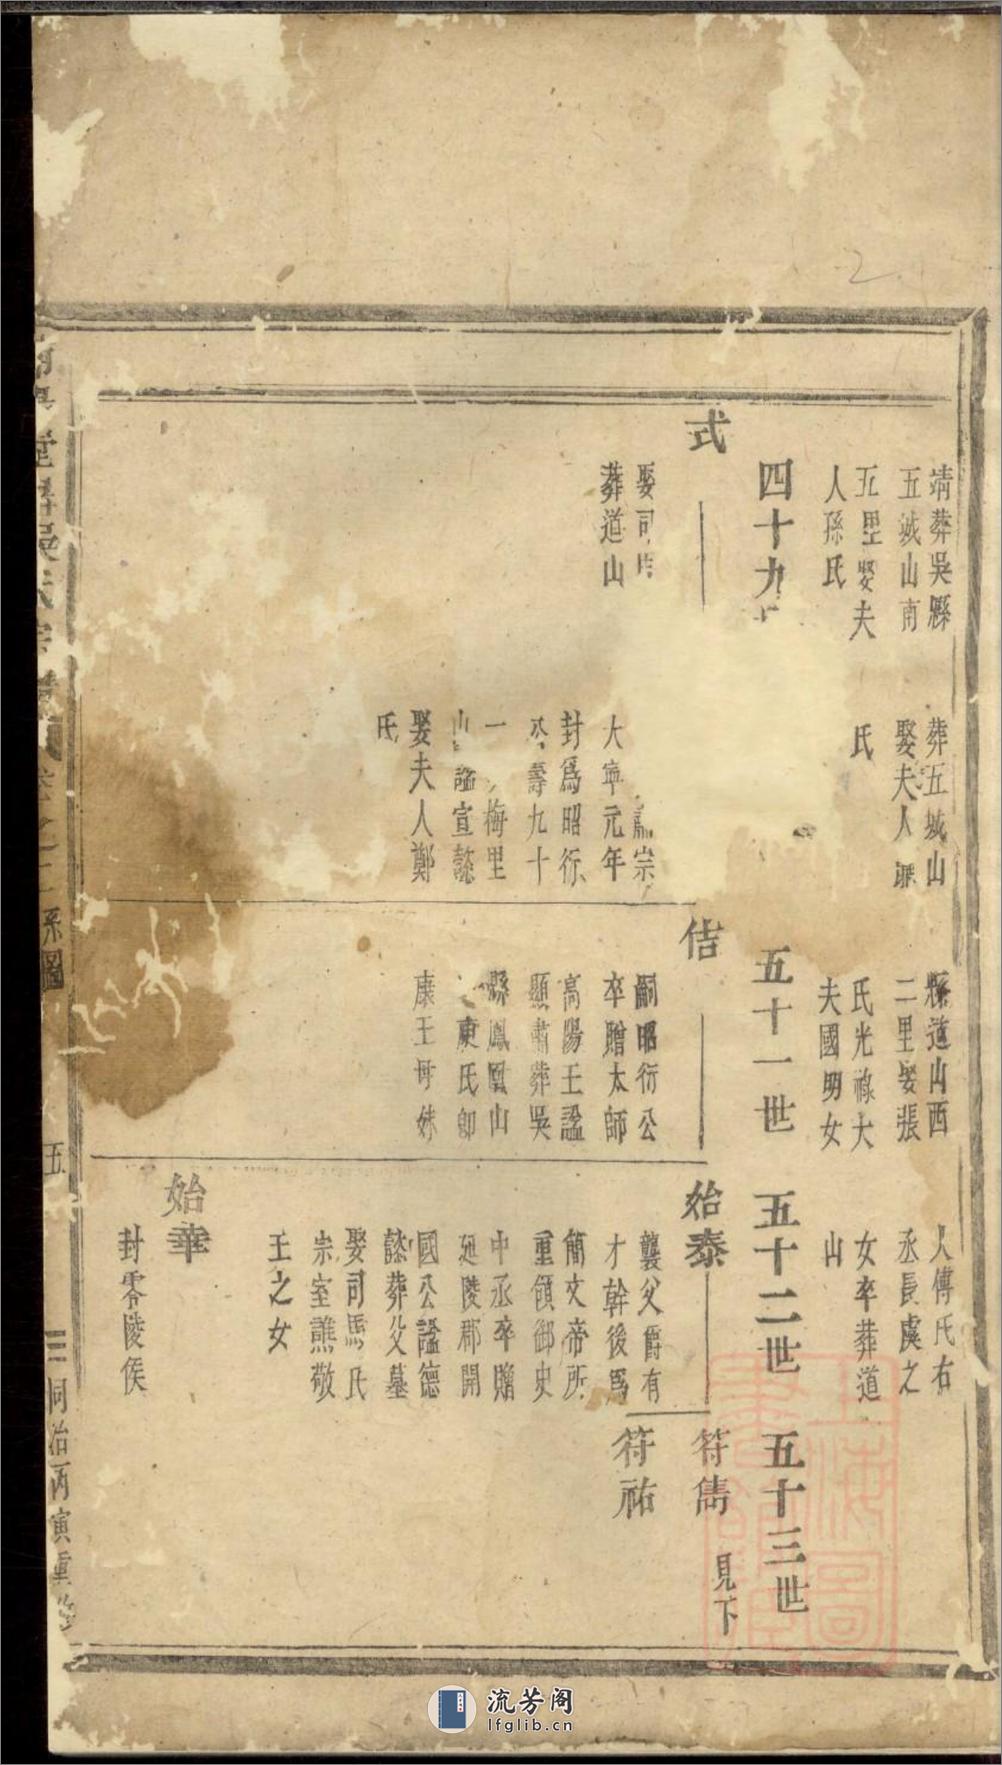 靖葬吳縣
五城山南
五里娶夫
人孫氏
葬五城山
娶夫人
氏
縣道山西
二里娶張
氏光祿大
夫國明女
人傅氏右
丞長虞之
女卒葬道
山
四十九
五十一世
五十二世
五十三世
式
娶司
葬道山
宗
大寧元年
封爲昭衍
公壽九十
一 梅里
山 謚宣懿
娶夫人鄭
氏
佶
嗣昭衍公
卒贈太師
高陽王謚
顯肅葬吳
縣鳳凰山
庾氏卽
康王母妹
始泰
襲父爵有
才幹後爲
簡文帝所
重領御史
中丞卒贈
延陵郡開
國公謚德
懿葬父墓
娶司馬氏
宗室譙敬
王之女
始華
封零陵侯
符儁 見下
符祐
堂 吳氏宗譜 卷之二 系圖
五
同治丙寅重修
上海圖書館藏
流芳阁
lfglib.cn